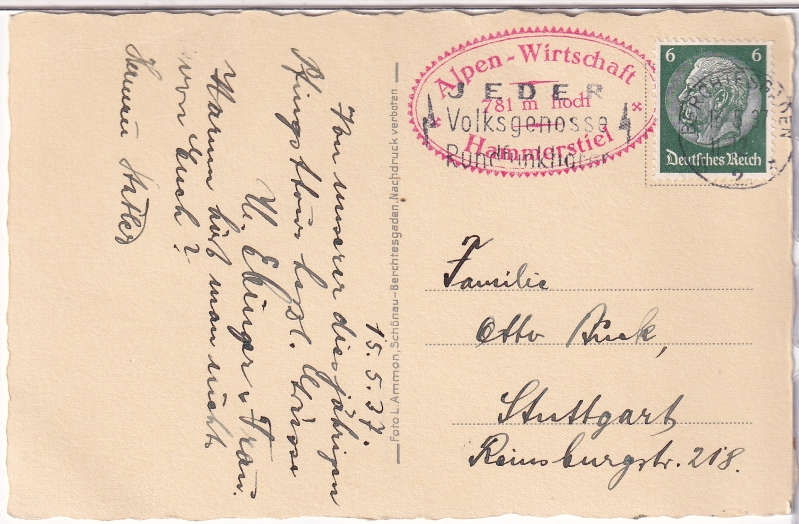 15.5.37.
Von unserer diesjährigen
Pfingsttour herzl. Grüsse
U. Ebinger u. Frau.
Warum hört man nichts
von Euch?
Herman
Foto L. Ammon, Schönau-Berchtesgaden. Nachdruck verboten
Alpen-Wirtschaft
781 m hoch
Hammerstiel
JEDER
Volksgenosse
Rundfunkhörer
6 6
Deutsches Reich
BERCHTESGADEN
2
Familie
Otto
Stuttgart
Reinsburgstr. 218.